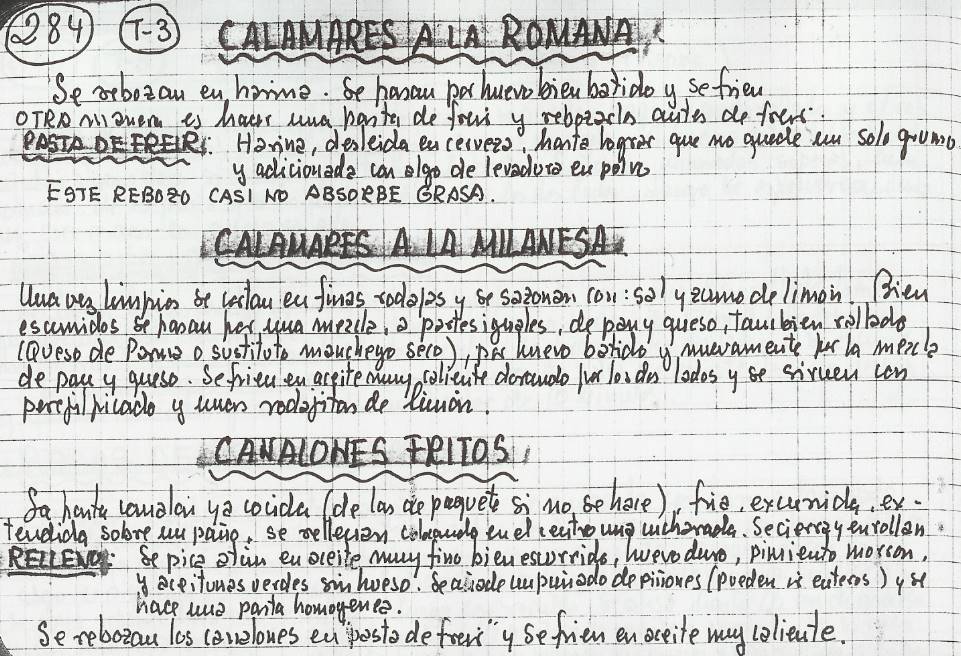 284 T-3 CALAMARES A LA ROMANA
Se rebozan en harina. Se pasan por huevo bien batido y se frien
OTRA manera es hacer una pasta de freir y rebozarlos antes de freir.
PASTA DE FREIR: Harina, desleida en cerveza, hasta lograr que no quede un solo grumo
y adicionada con algo de levadura en polvo
ESTE REBOZO CASI NO ABSORBE GRASA.
CALAMARES A LA MILANESA
Una vez limpios se cortan en finas rodajas y se sazonan con: sal y zumo de limón. Bien
escurridos se pasan por una mezcla, a partes iguales, de pan y queso, también rallado
(Queso de Parma o sustituto manchego seco), por huevo batido y nuevamente por la mezcla
de pan y queso. Se frien en aceite muy caliente dorando por los dos lados y se sirven con
perejil picado y unas rodajitas de limón.
CANALONES FRITOS
La pasta canalon ya cocida (de las de paquete si no se hace), fria, escurrida, ex-
tendida sobre un paño, se rellenan colocando en el centro una cucharada. Se cierra y enrollan
RELLENO: Se pica atún en aceite muy fino bien escurrido, huevo duro, pimiento morron,
y aceitunas verdes sin hueso. Se añade un puñado de piñones (pueden ir enteros) y se
hace una pasta homogenea.
Se rebozan los canalones en "pasta de freir" y se frien en aceite muy caliente.